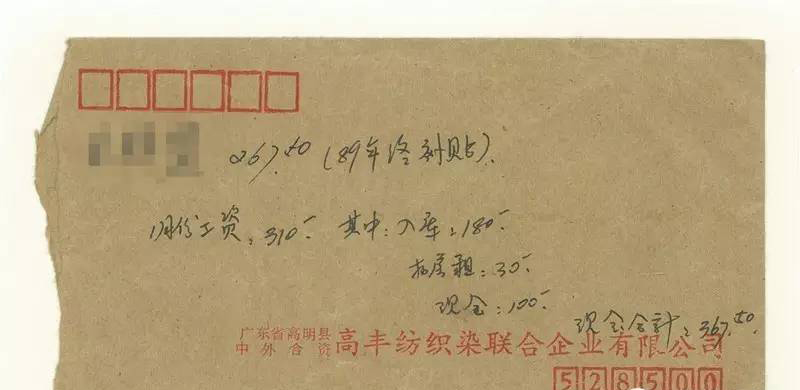 267.50 (89年终补贴).
1月份工资:310- 其中:入库:180-
扣房租:30-
现金:100-
现金合计:367.50
广东省高明县
中外合资 高丰纺织染联合企业有限公司
528500